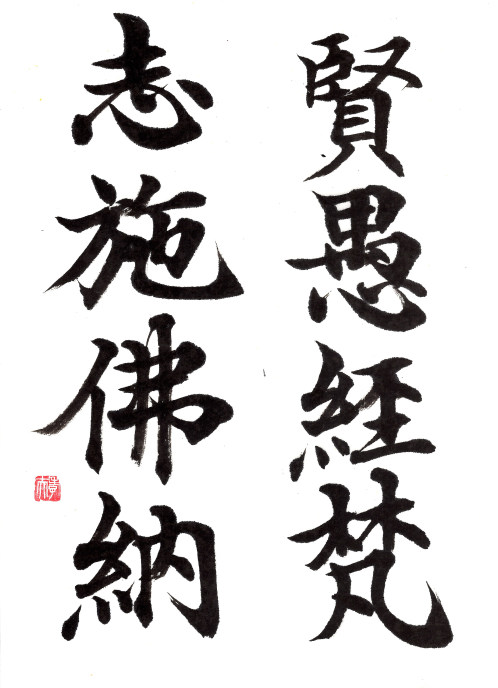 賢愚経梵
志施佛納